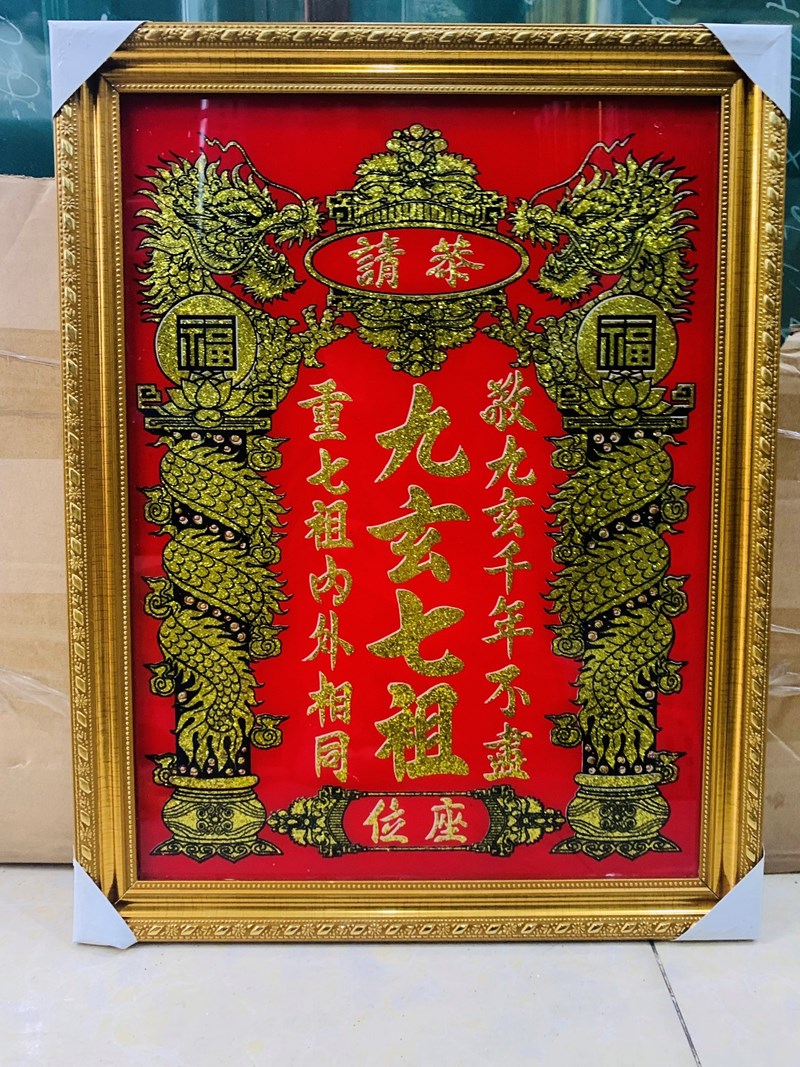 恭請
福
福
敬九玄千年不盡
九玄七祖
重七祖内外相同
座位